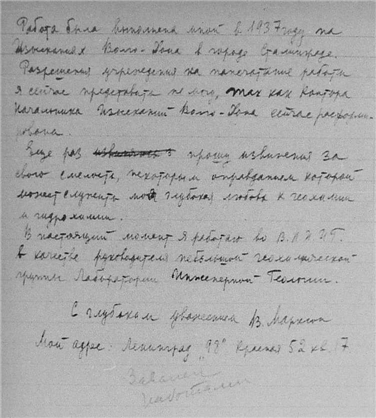 Работа была выполнена мной в 1937 году на
Изысканиях Волго-Дона в городе Сталинграде.
Разрешения учреждения на напечатание работы
я сейчас представить не могу, так как Контора
Начальника Изысканий Волго-Дона сейчас расформи-
рована.
Еще раз прошу извинения за
свою смелость, некоторым оправданием которой
может служить моя глубокая любовь к геологии
и гидрохимии.
В настоящий момент я работаю во
в качестве руководителя небольшой геохимической
группы Лаборатории Инженерной Геологии.
С глубоким уважением В.
Мой адрес: Ленинград „98" Красная 52 кв. 17